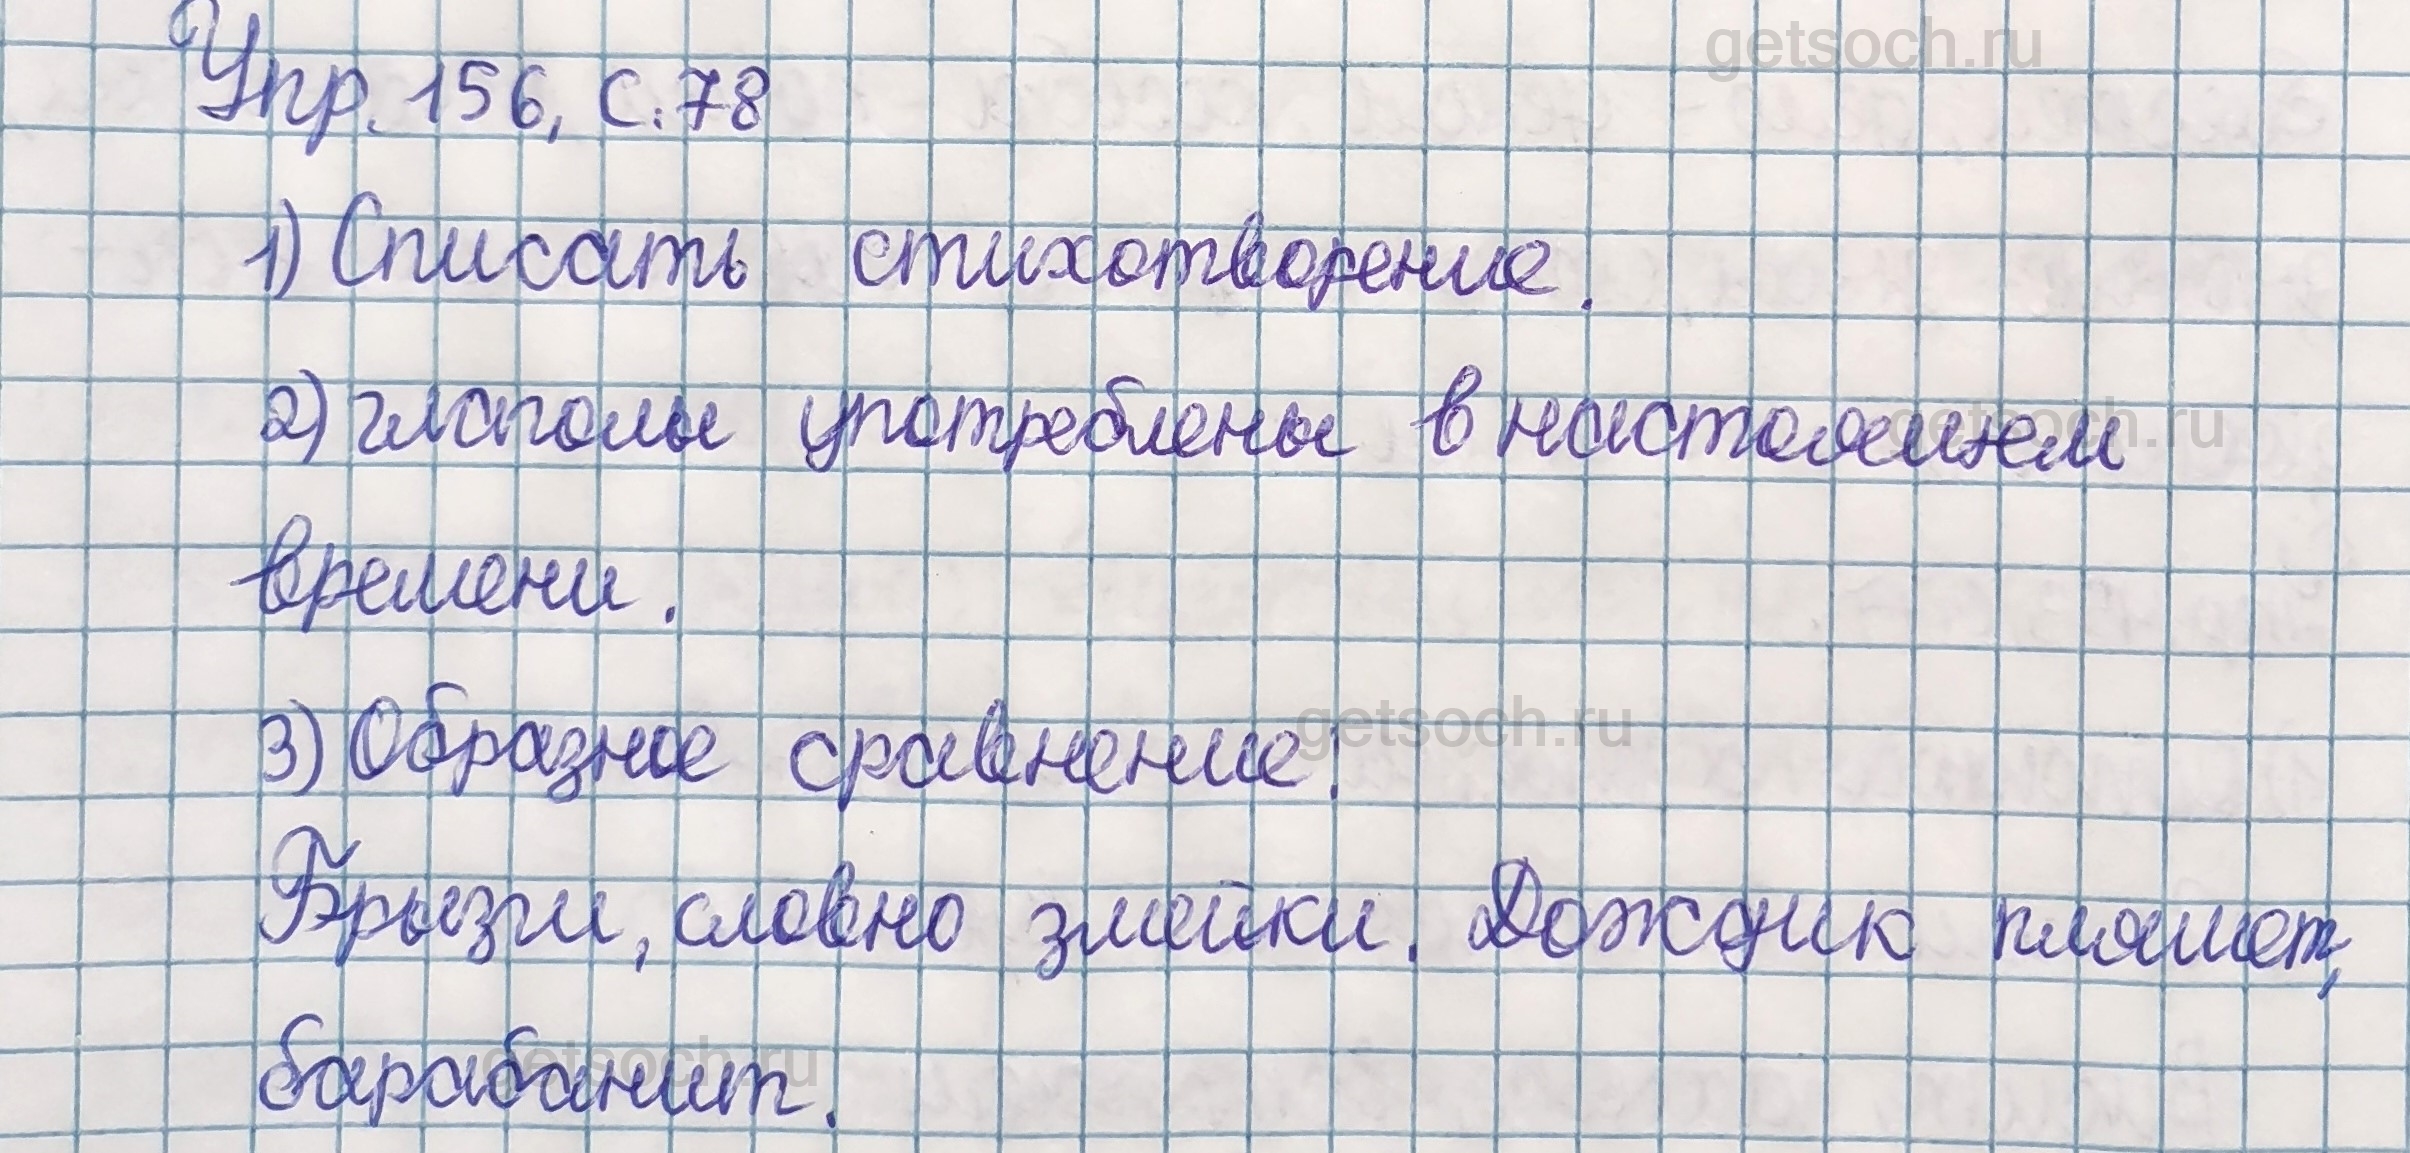 getsoch.ru
Упр. 156, с. 78
1) Списать стихотворение.
2) глаголы употреблены в настоящем
getsoch.ru
времени.
3) Образное сравнение:
getsoch.ru
Брызги, словно змейки. Дождик пляшет,
барабанит.
getsoch.ru